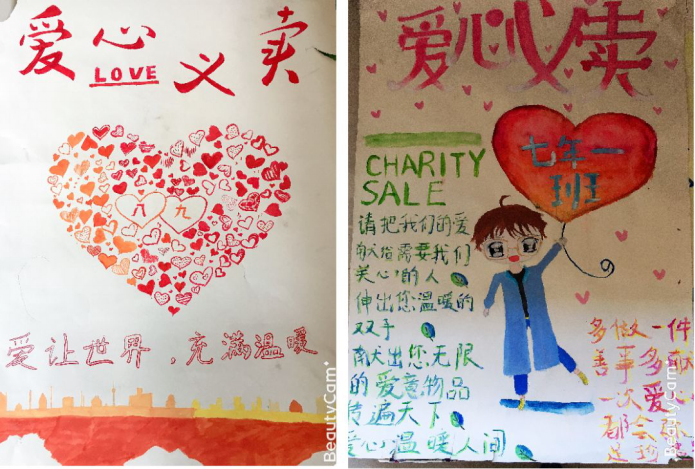 爱心义卖
LOVE
八 九
爱让世界，充满温暖
BeautyCam
爱心义卖
七年一
班
CHARITY
SALE
请把我们的爱
给需要我们
关心的人
伸出您温暖的
双手
出您无限
的爱意物品
传遍天下
爱心温暖人间
多做一件
善事多献
一次爱
都会
BeautyCam